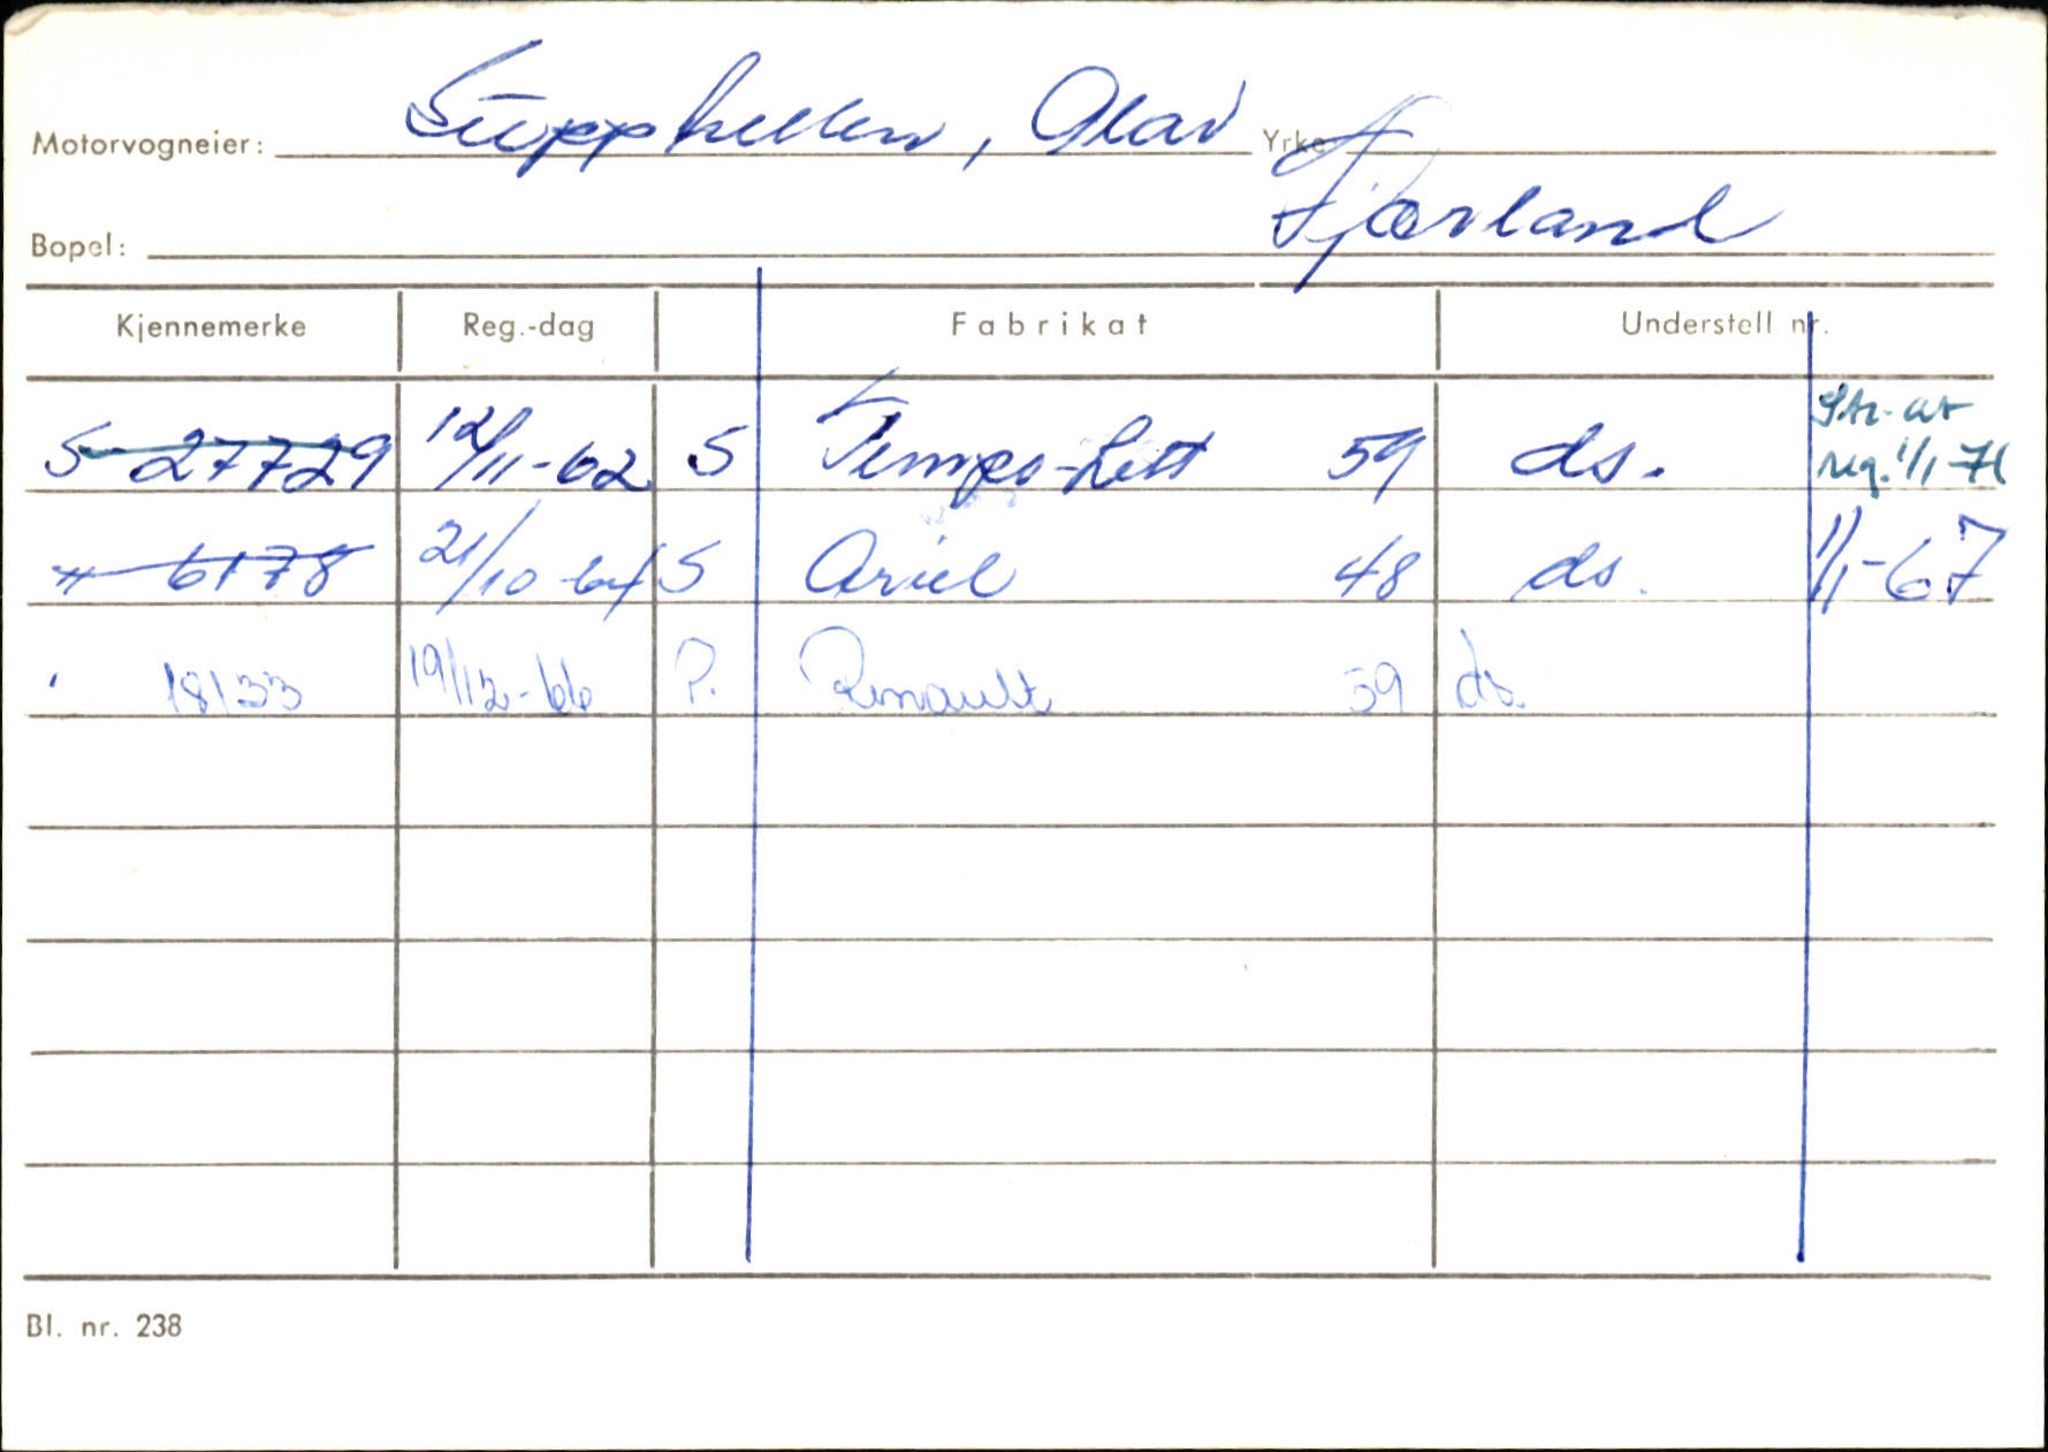 Motorvogneier: Supphellen, Olav Yrke
Bopel: Fjærland
Kjennemerke Reg.-dag Fabrikat Understell nr.
S 27729 12/11-62 S Tempo-Lett 59 ds. Str. av reg. 1/1-71
" 6178 21/10-64 S Ariel 48 ds. 1/1-67
" 18133 19/12-66 P. Renault 59 ds.
Bl. nr. 238